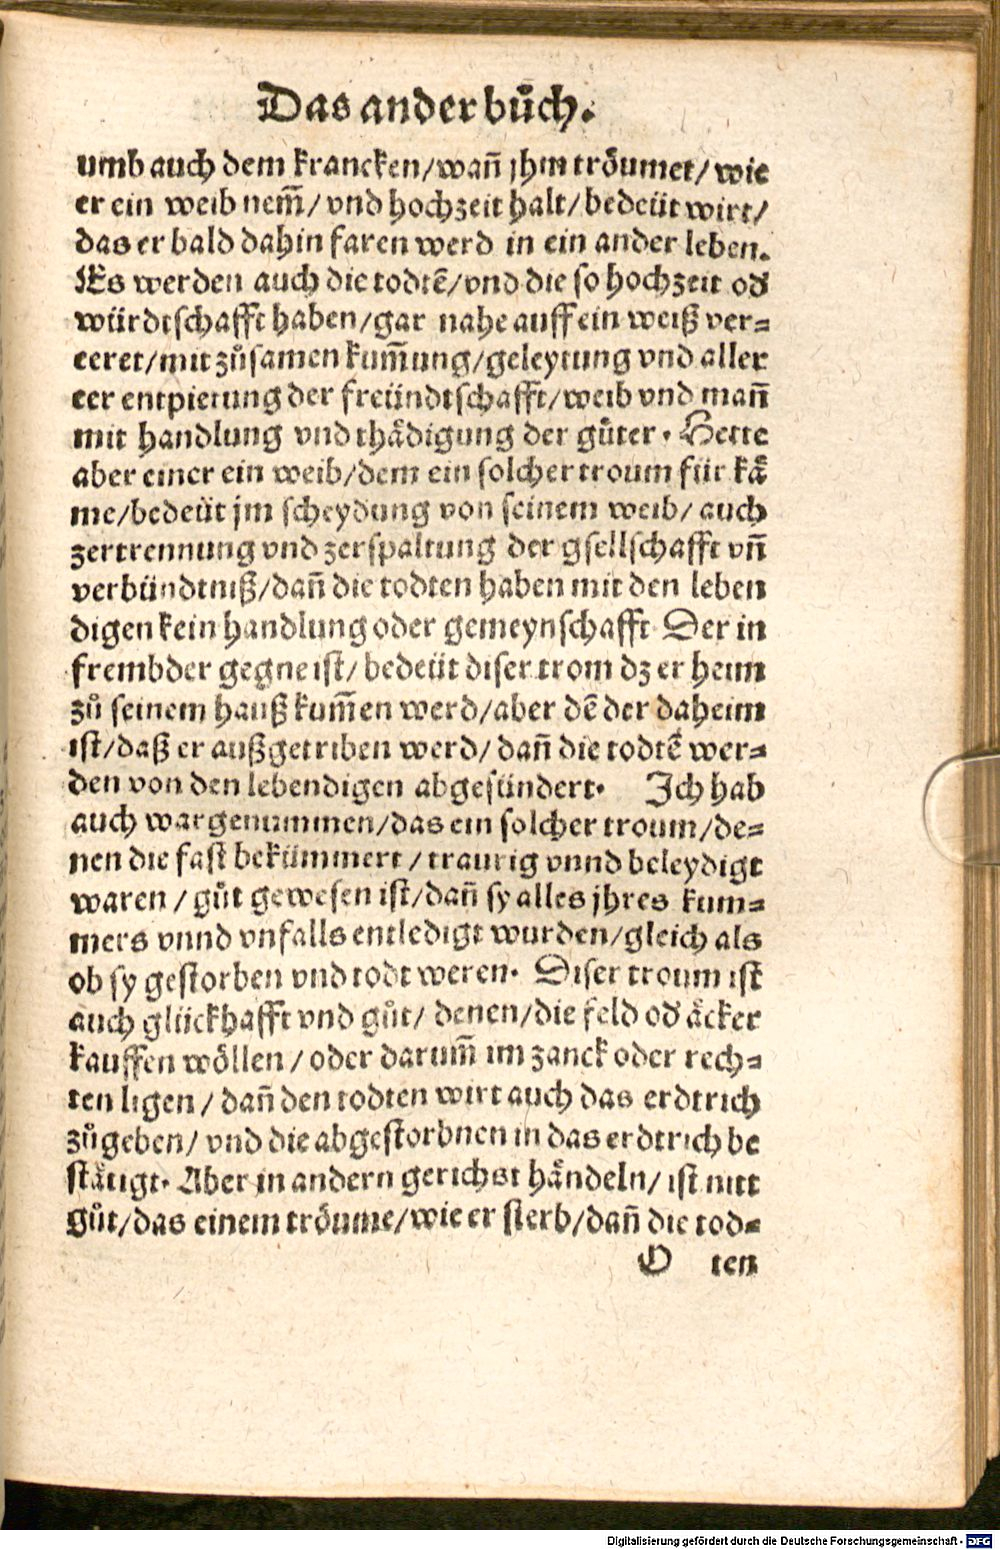 Das ander bůch.
umb auch dem krancken/wañ jhm tröumet/ wie
er ein weib nem̃/ vnd hochzeit halt/ bedeüt wirt/
das er bald dahin faren werd in ein ander leben.
Es werden auch die todtẽ/vnd die so hochzeit od᷑
würdtschafft haben/gar nahe auff ein weiß ver⸗
eeret/mit zůsamen kum̃ung/geleytung vnd aller
eer entpietung der freündtschafft/weib vnd mañ
mit handlung vnd thädigung der gůter. Hette
aber einer ein weib/dem ein solcher troum für kä
me/bedeüt jm scheydung von seinem weib/ auch
zertrennung vnd zerspaltung der gsellschafft vñ
verbündtniß/dañ die todten haben mit den leben
digen kein handlung oder gemeynschafft Der in
frembder gegne ist/ bedeüt diser trom dz er heim
zů seinem hauß kum̃en werd/aber dẽ der daheim
ist/daß er außgetriben werd/ dañ die todtẽ wer⸗
den von den lebendigen abgesündert. Ich hab
auch wargenummen/das ein solcher troum/de⸗
nen die fast bekümmert / traurig vnnd beleydigt
waren / gůt gewesen ist/dañ sy alles jhres kum⸗
mers vnnd vnfalls entledigt wurden/gleich als
ob sy gestorben vnd todt weren. Diser troum ist
auch glückhafft vnd gůt/ denen/die feld od᷑ äcker
kauffen wöllen / oder darum̃ im zanck oder rech⸗
ten ligen / dañ den todten wirt auch das erdtrich
zůgeben/ vnd die abgestorbnen in das erdtrich be
stätigt. Aber in andern gerichst händeln/ ist nitt
gůt/das einem tröume/wie er sterb/dañ die tod⸗
O ten
Digitalisierung gefördert durch die Deutsche Forschungsgemeinschaft - DFG